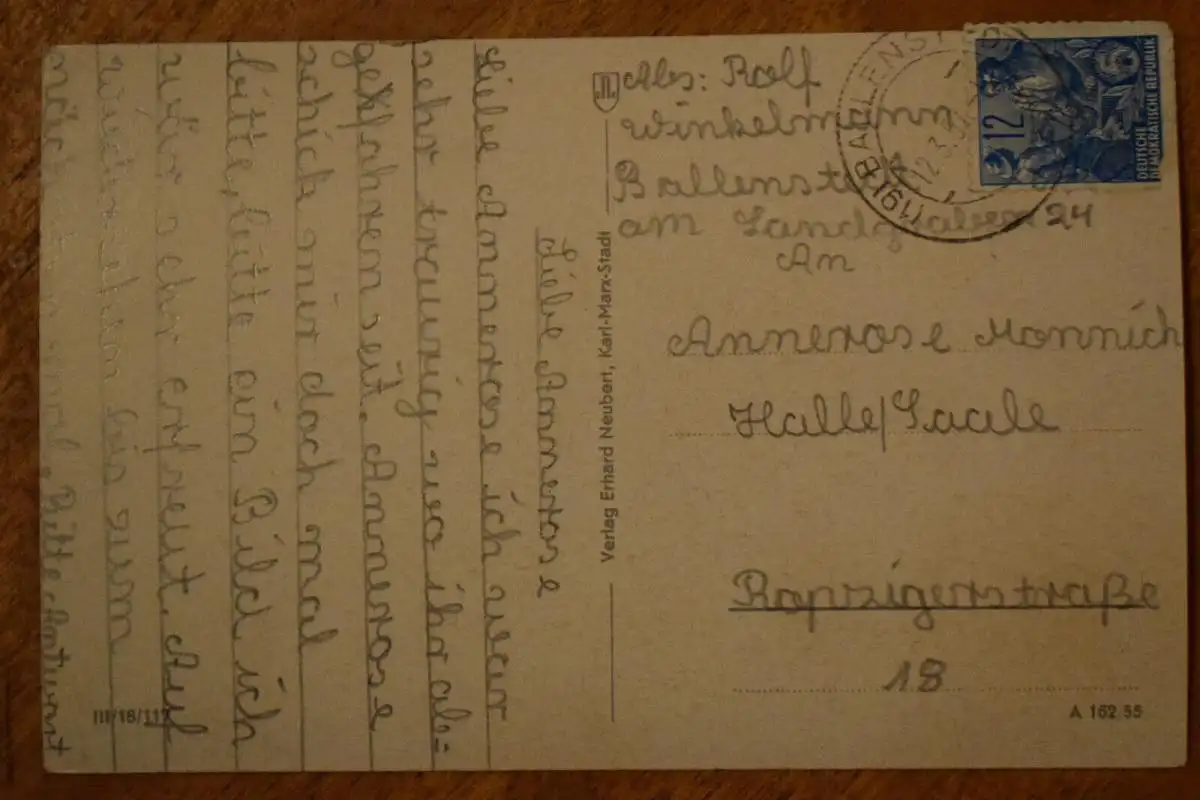 Liebe Annerose
Liebe Annerose ich war
sehr traurig wo ihr ab=
gekfahren seit. Annerose
schick mir doch mal
bitte, bitte ein Bild ich
wär sehr erfreut. Auf
wiedersehen bis zum
mal. Bitte Antwort
III/18/117
Verlag Erhard Neubert, Karl-Marx-Stadt
Abs: Rolf
Winkelmann
Ballenstedt
am 24
An
Annerose Monnich
Halle/Saale
Rapzigerstraße
18
A 162 55
12
DEUTSCHE
DEMOKRATISCHE REPUBLIK
(19) BALLENST
12.3.